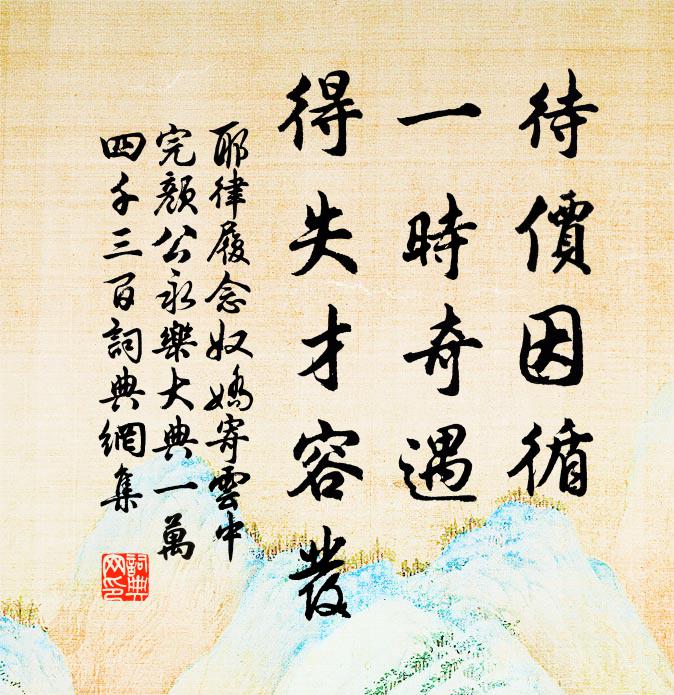 待價因循
一時奇遇
得失才容發
耶律履念奴嬌寄雲中
完顏公永樂大典一萬
四千三百詞典網集
詞典